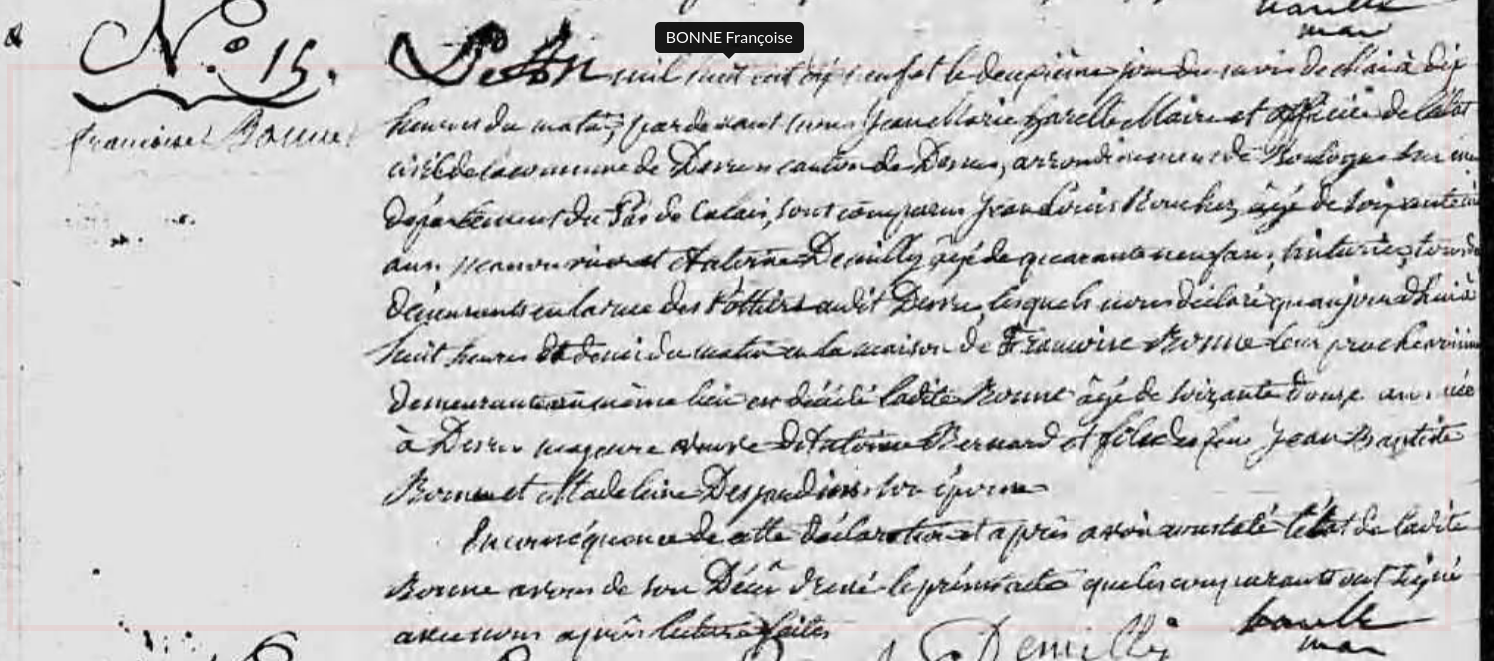 BONNE Françoise
N.º 15.
françoise Bonne
L'An mil huit cent dix neuf et le deuxième jour du mois de Mai à dix
heures du matin, pardevant nous Jean Marie Maire et officier de l'état
civil de la commune de Desvres canton de Desvres, arrondissement de Boulogne sur mer
département du Pas de Calais, sont comparus Jean Louis Bouchez, âgé de soixante
ans, manouvrier et Antoine Demilly âgé de quarante neuf ans, tous deux
demeurants en la rue des Pottiers audit Desvres, lesquels nous déclaré qu'aujourd'hui à
huit heures et demi du matin en la maison de Françoise Bonne leur proche voisine
demeurante au même lieu est décédé ladite Bonne âgé de soixante douze ans, née
à Desvres majeure veuve d'Antoine Bernard et fille de feu Jean Baptiste
Bonne et Madeleine Desjardins son épouse
En conséquence de cette déclaration et après avoir constaté l'état de ladite
Bonne avons de son Décès dressé le présent acte que les comparants ont signé
avec nous après lecture faites
Demilly